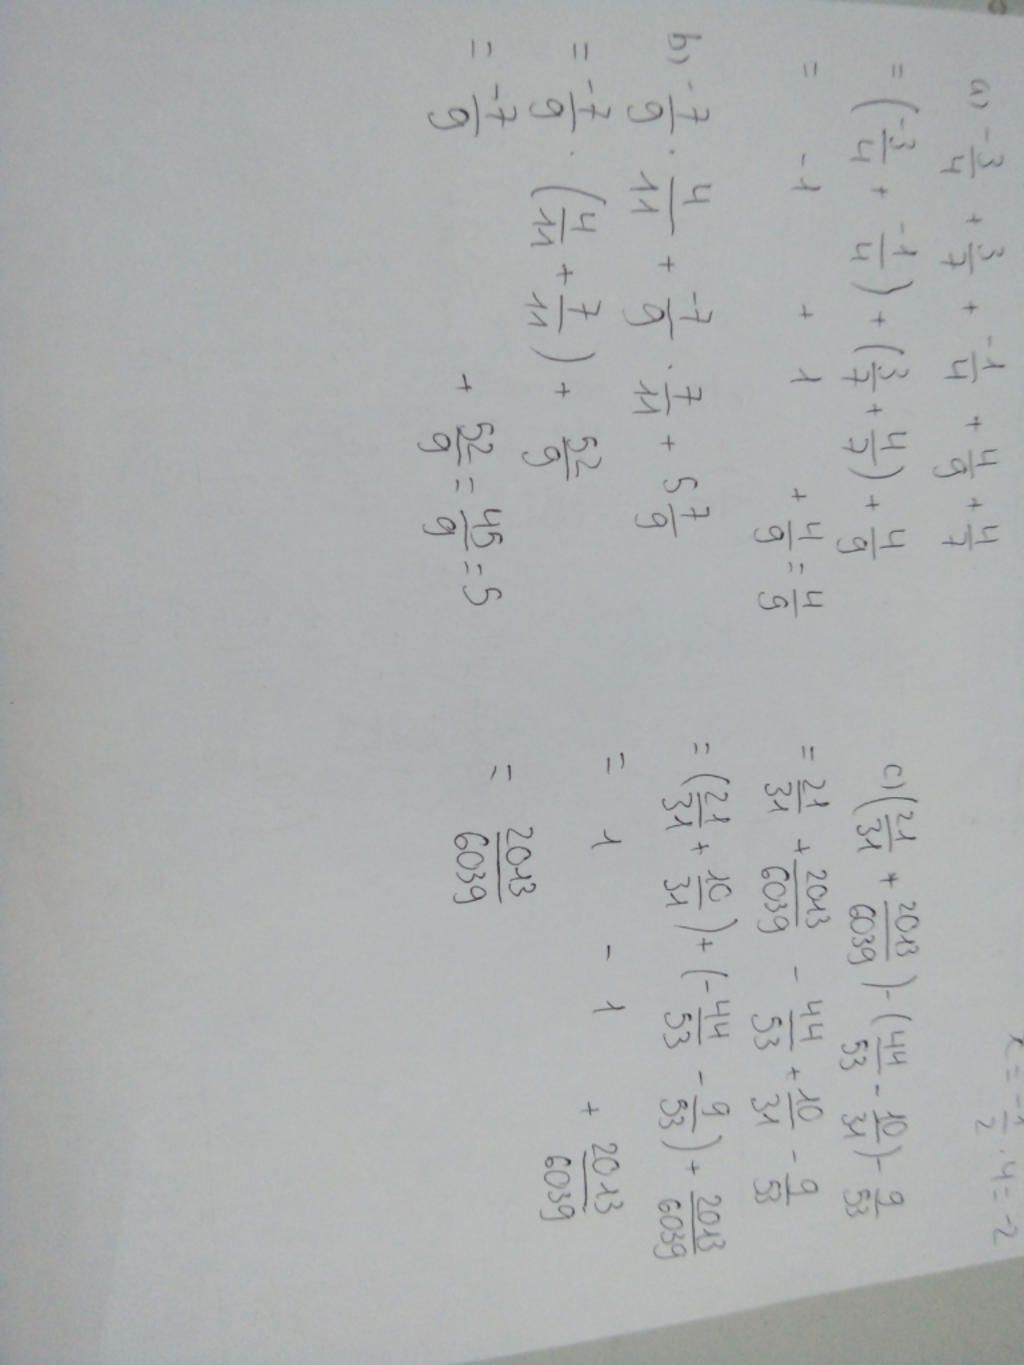 a) -3/4 + 3/7 + -1/4 + 4/9 + 4/7
= (-3/4 + -1/4) + (3/7 + 4/7) + 4/9
= -1 + 1 + 4/9 = 4/9
b) -7/9 · 4/11 + -7/9 · 7/11 + 5 7/9
= -7/9 · (4/11 + 7/11) + 52/9
= -7/9 + 52/9 = 45/9 = 5
x = -1/2 · 4 = -2
c) (21/31 + 2013/6039) - (44/53 - 10/31) - 9/53
= 21/31 + 2013/6039 - 44/53 + 10/31 - 9/53
= (21/31 + 10/31) + (-44/53 - 9/53) + 2013/6039
= 1 - 1 + 2013/6039
= 2013/6039